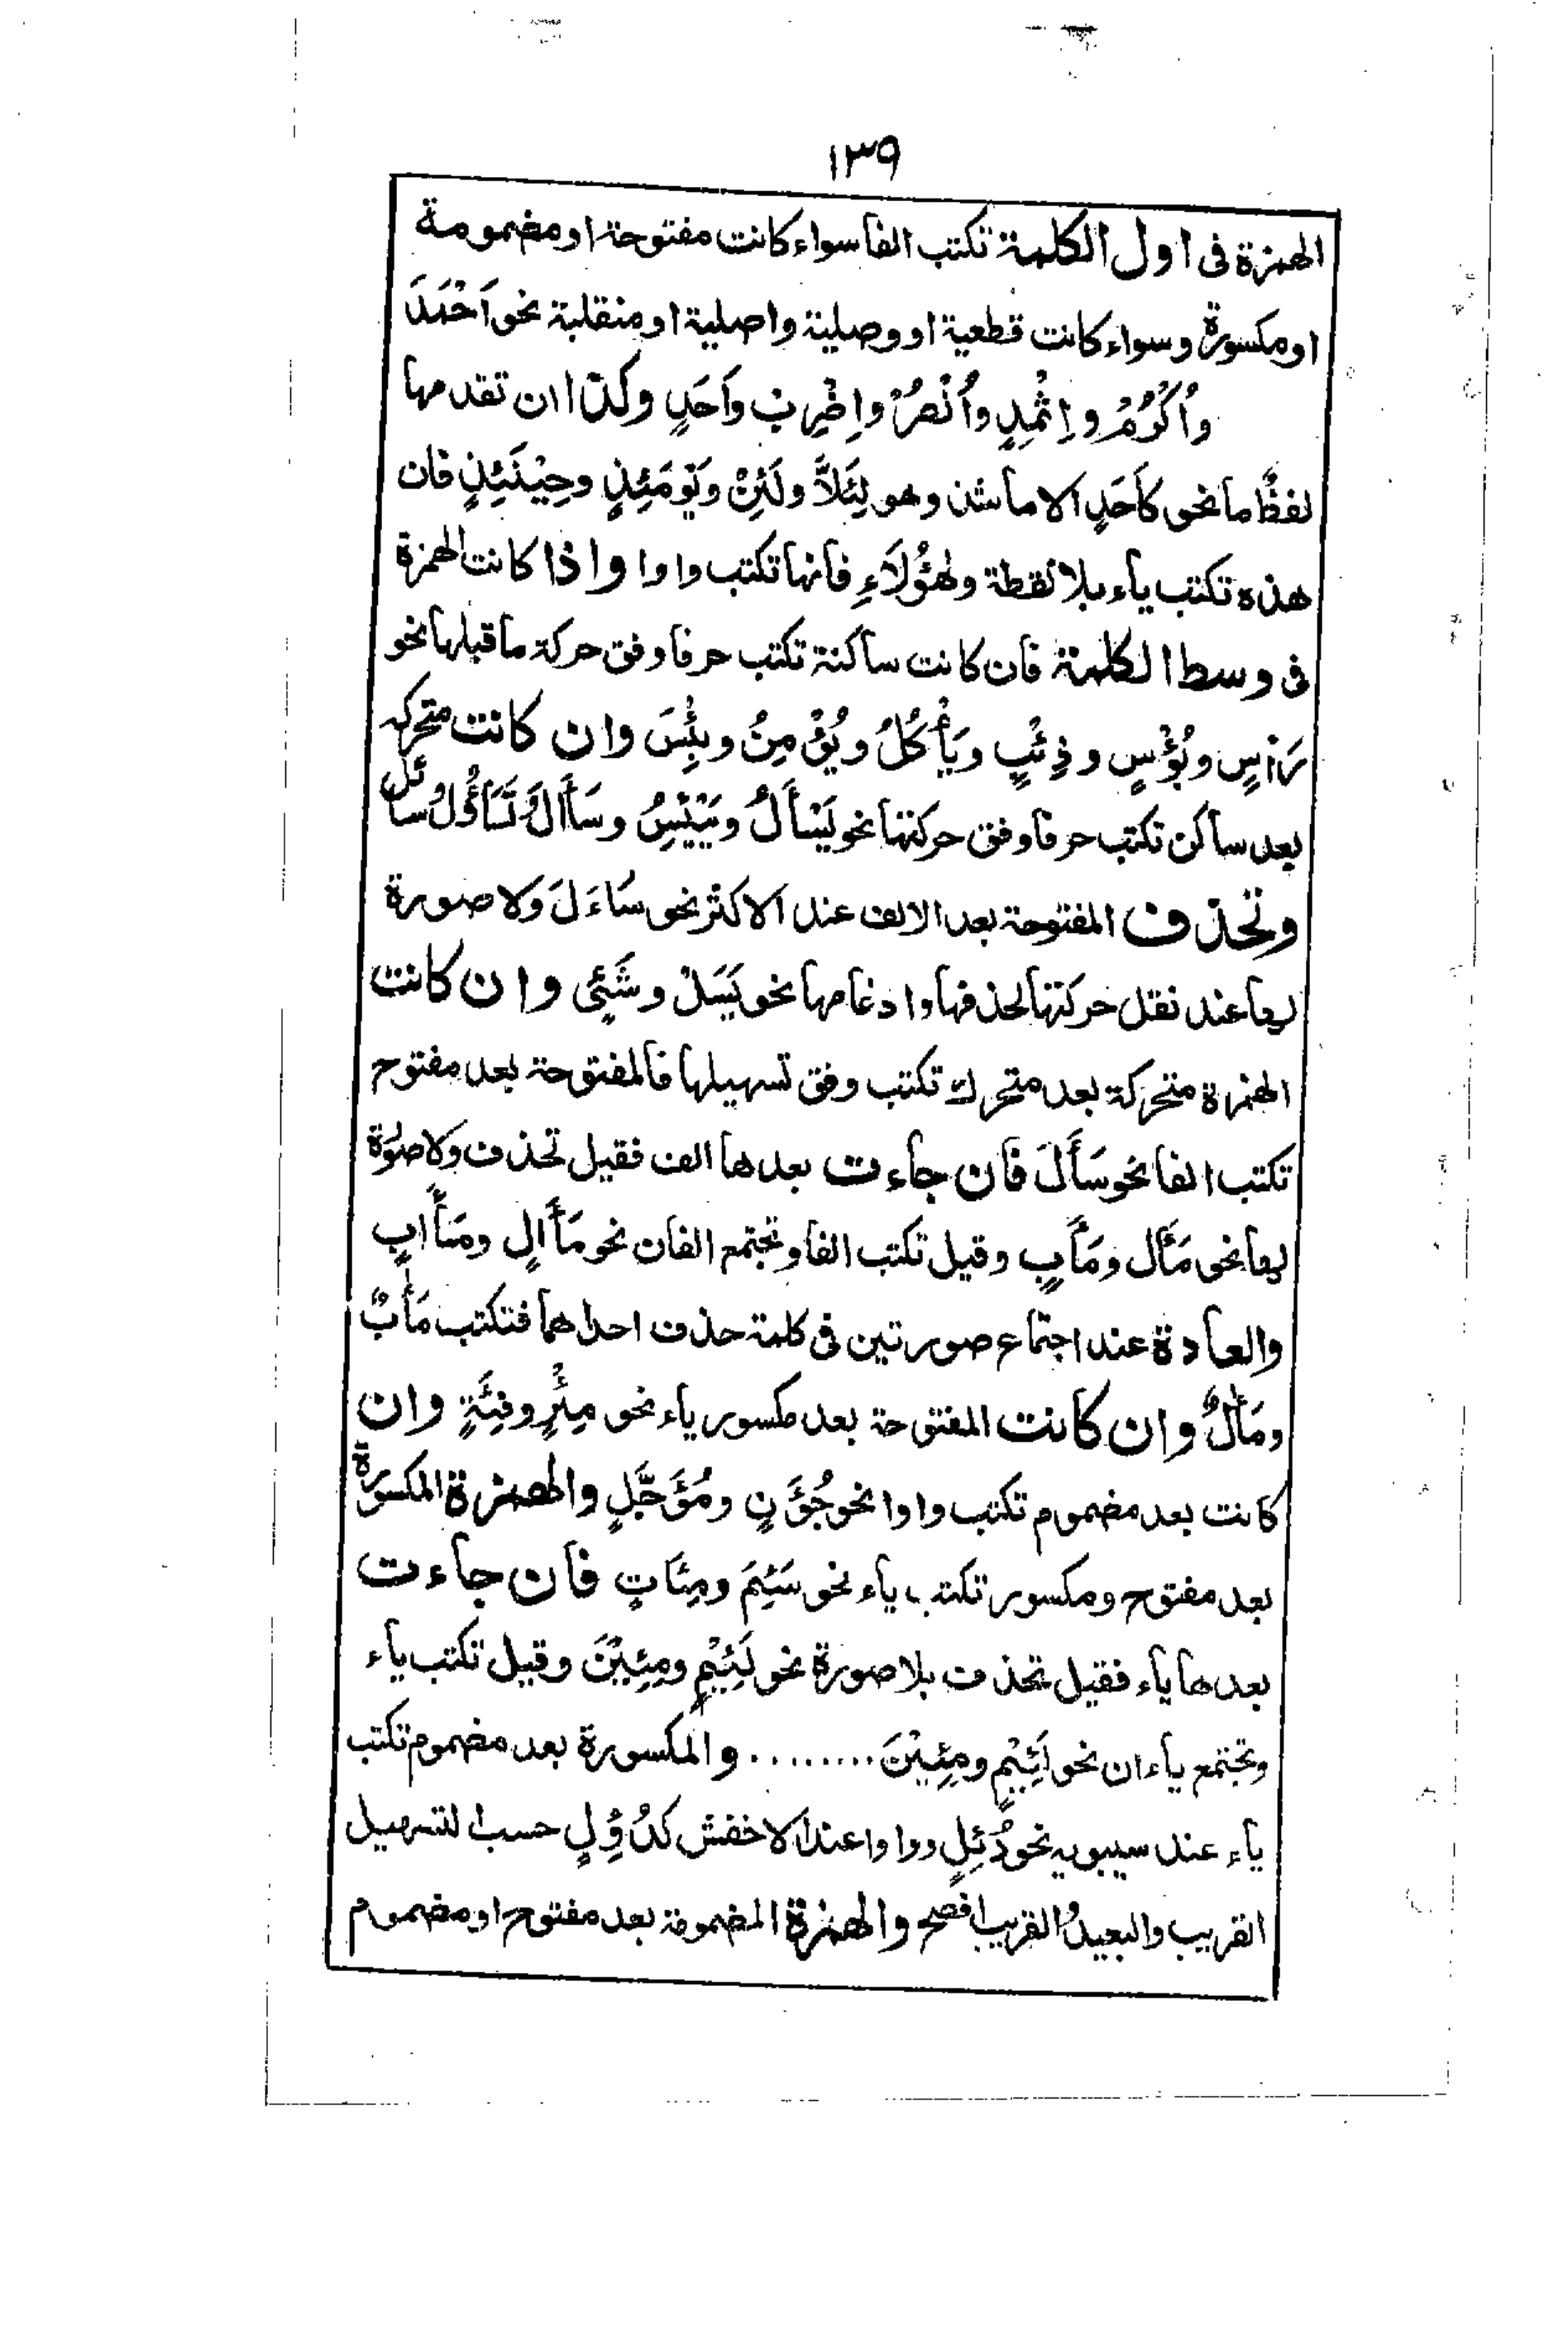 ١٣٩
الهمزة فی اول الکلمة تکتب الفا سواء کانت مفتوحة او مضمومة
او مکسورة وسواء کانت قطعیة او وصلیة واصلیة او منقلبة نحو اَحْمَدَ
واُکْرُمُ و اِثْمِدٍ واُنْصُرْ واِضْرِبْ واَحَدٍ وکذا ان تقدمها
لفظٌ ما نحو کاَحَدٍ الا ما شذ وهو لِئَلاَّ ولَئِنْ ویَوْمَئِذٍ وحِیْنَئِذٍ فان
هذه تکتب یاء بلا نقطة ولهٰؤُلَاءِ فانها تکتب واوا واذا کانت الهمزة
فی وسط الکلمة فان کانت ساکنة تکتب حرفا وفق حرکة ما قبلها نحو
رَأْسٍ وبُؤْسٍ وذِئْبٍ ویَأْکُلُ ویُؤْمِنُ وبِئْسَ وان کانت متحرکة
بعد ساکن تکتب حرفا وفق حرکتها نحو یَسْأَلُ ویَیْئِسُ وسَأَالَ وتَسَاؤُلُ وسائل
وتحذف المفتوحة بعد الالف عند الاکثر نحو سَاءَلَ ولا صورة
لها عند نقل حرکتها لحذفها وادغامها نحو یَسَلْ وشَیْئٍ وان کانت
الهمزة متحرکة بعد متحرك تکتب وفق تسهیلها فالمفتوحة بعد مفتوح
تکتب الفا نحو سَأَلَ فان جاءت بعدها الف فقیل تحذف ولا صورة
لها نحو مَئَال ومَأَبٍ وقیل تکتب الفا وتجتمع الفان نحو مَأَالٍ ومَأَابٍ
والعادة عند اجتماع صورتین فی کلمة حذف احداهما فتکتب مَأَبٌ
ومَأَلٌ وان کانت المفتوحة بعد مکسور یاء نحو مِئَرٍ وفِئَةٍ وان
کانت بعد مضموم تکتب واوا نحو جُؤَنٍ ومُؤَجَّلٍ والهمزة المکسورة
بعد مفتوح ومکسور تکتب یاء نحو سَئِمَ ومِئَاتٍ فان جاءت
بعدها یاء فقیل تحذف بلا صورة نحو لَئِیْمٍ ومِئِیْنَ وقیل تکتب یاء
وتجتمع یاءان نحو لَئِیْمٍ ومِئِیْنَ ......... والمکسورة بعد مضموم تکتب
یاء عند سیبویه نحو دُئِلٍ وواوا عند الاخفش کدُؤِلٍ حسب التسهیل
القریب والبعید والقریب افصح والهمزة المضمومة بعد مفتوح او مضموم